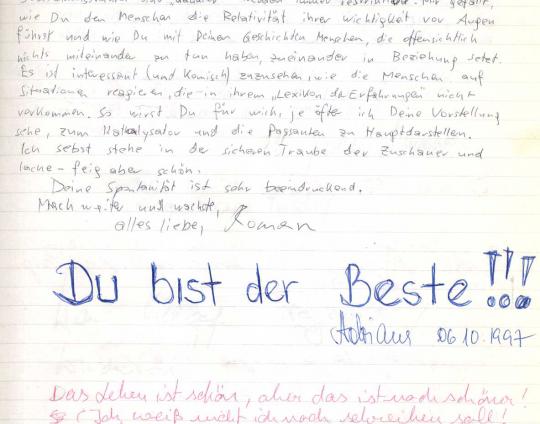 immer Mir gefällt,
wie Du den Menschen die Relativität ihrer Wichtigkeit vor Augen
führst und wie Du mit Deinen Geschichten Menschen, die offensichtlich
nichts miteinander zu tun haben, zueinander in Beziehung setzt.
Es ist interessant (und komisch) zuzusehen, wie die Menschen auf
Situationen reagieren, die in ihrem „Lexikon der Erfahrungen" nicht
vorkommen. So wirst Du für mich, je öfter ich Deine Vorstellung
sehe, zum Katalysator und die Passanten zu Hauptdarstellern.
Ich selbst stehe in der sicheren Traube der Zuschauer und
lache - feig aber schön.
Deine Spontanität ist sehr beeindruckend.
Mach weiter und wachste,
alles liebe, Roman
Du bist der Beste!!!
06.10.1997
Das Leben ist schön, aber das ist noch schöner!
(Ich weiß nicht ich noch schreiben soll!